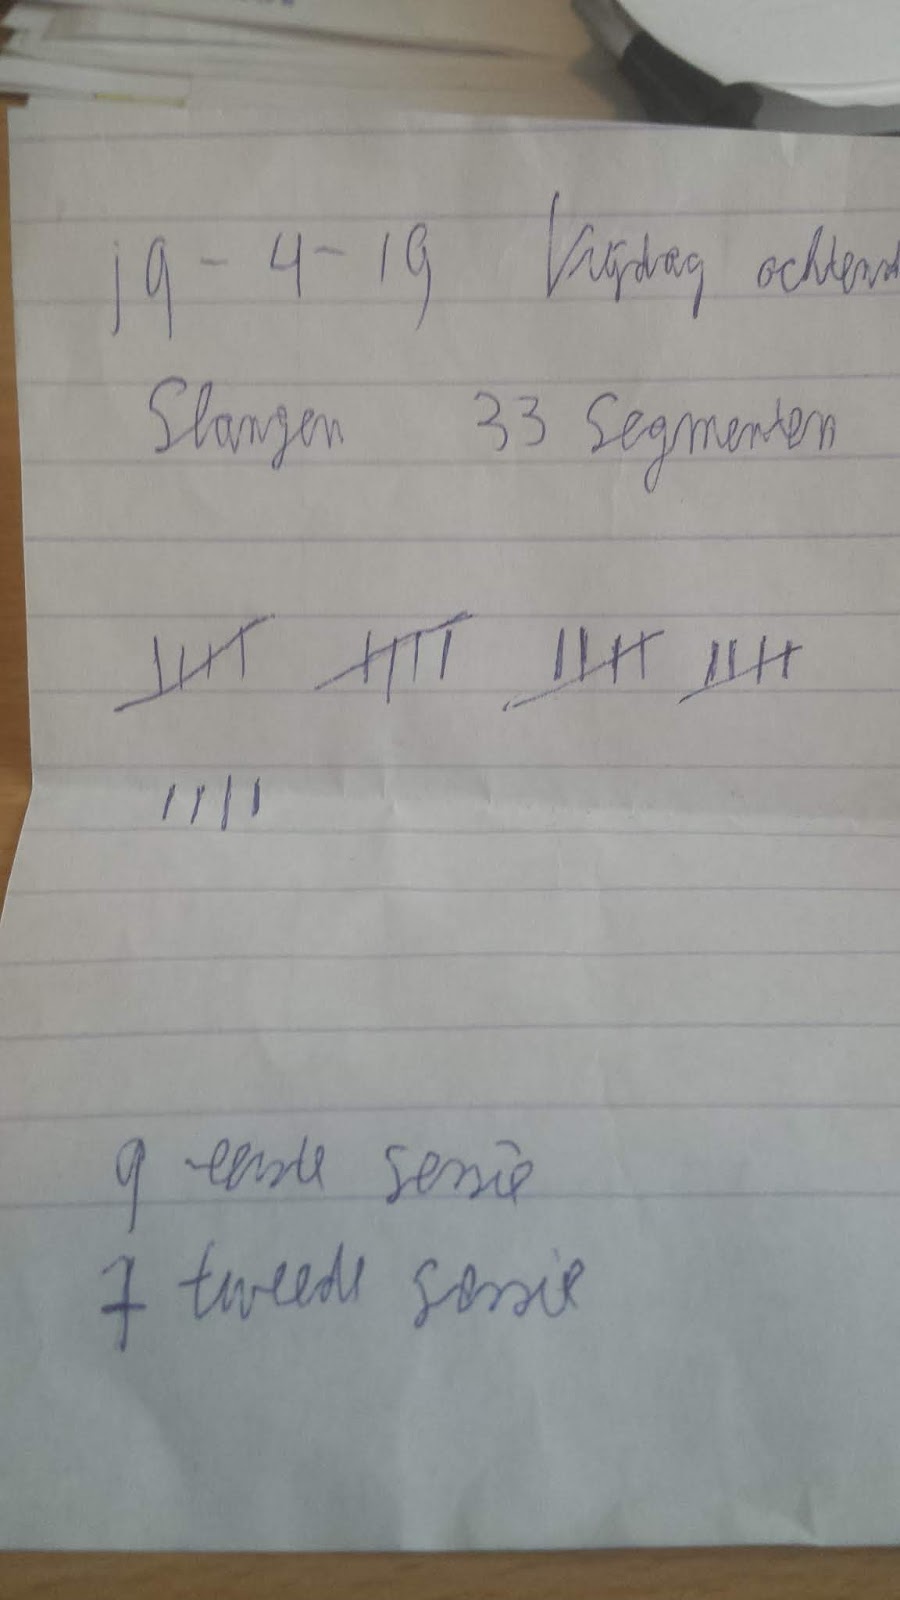 19-4-19 Vrijdag ochtend
Slangen 33 Segmenten
9 eerste sessie
7 tweede sessie